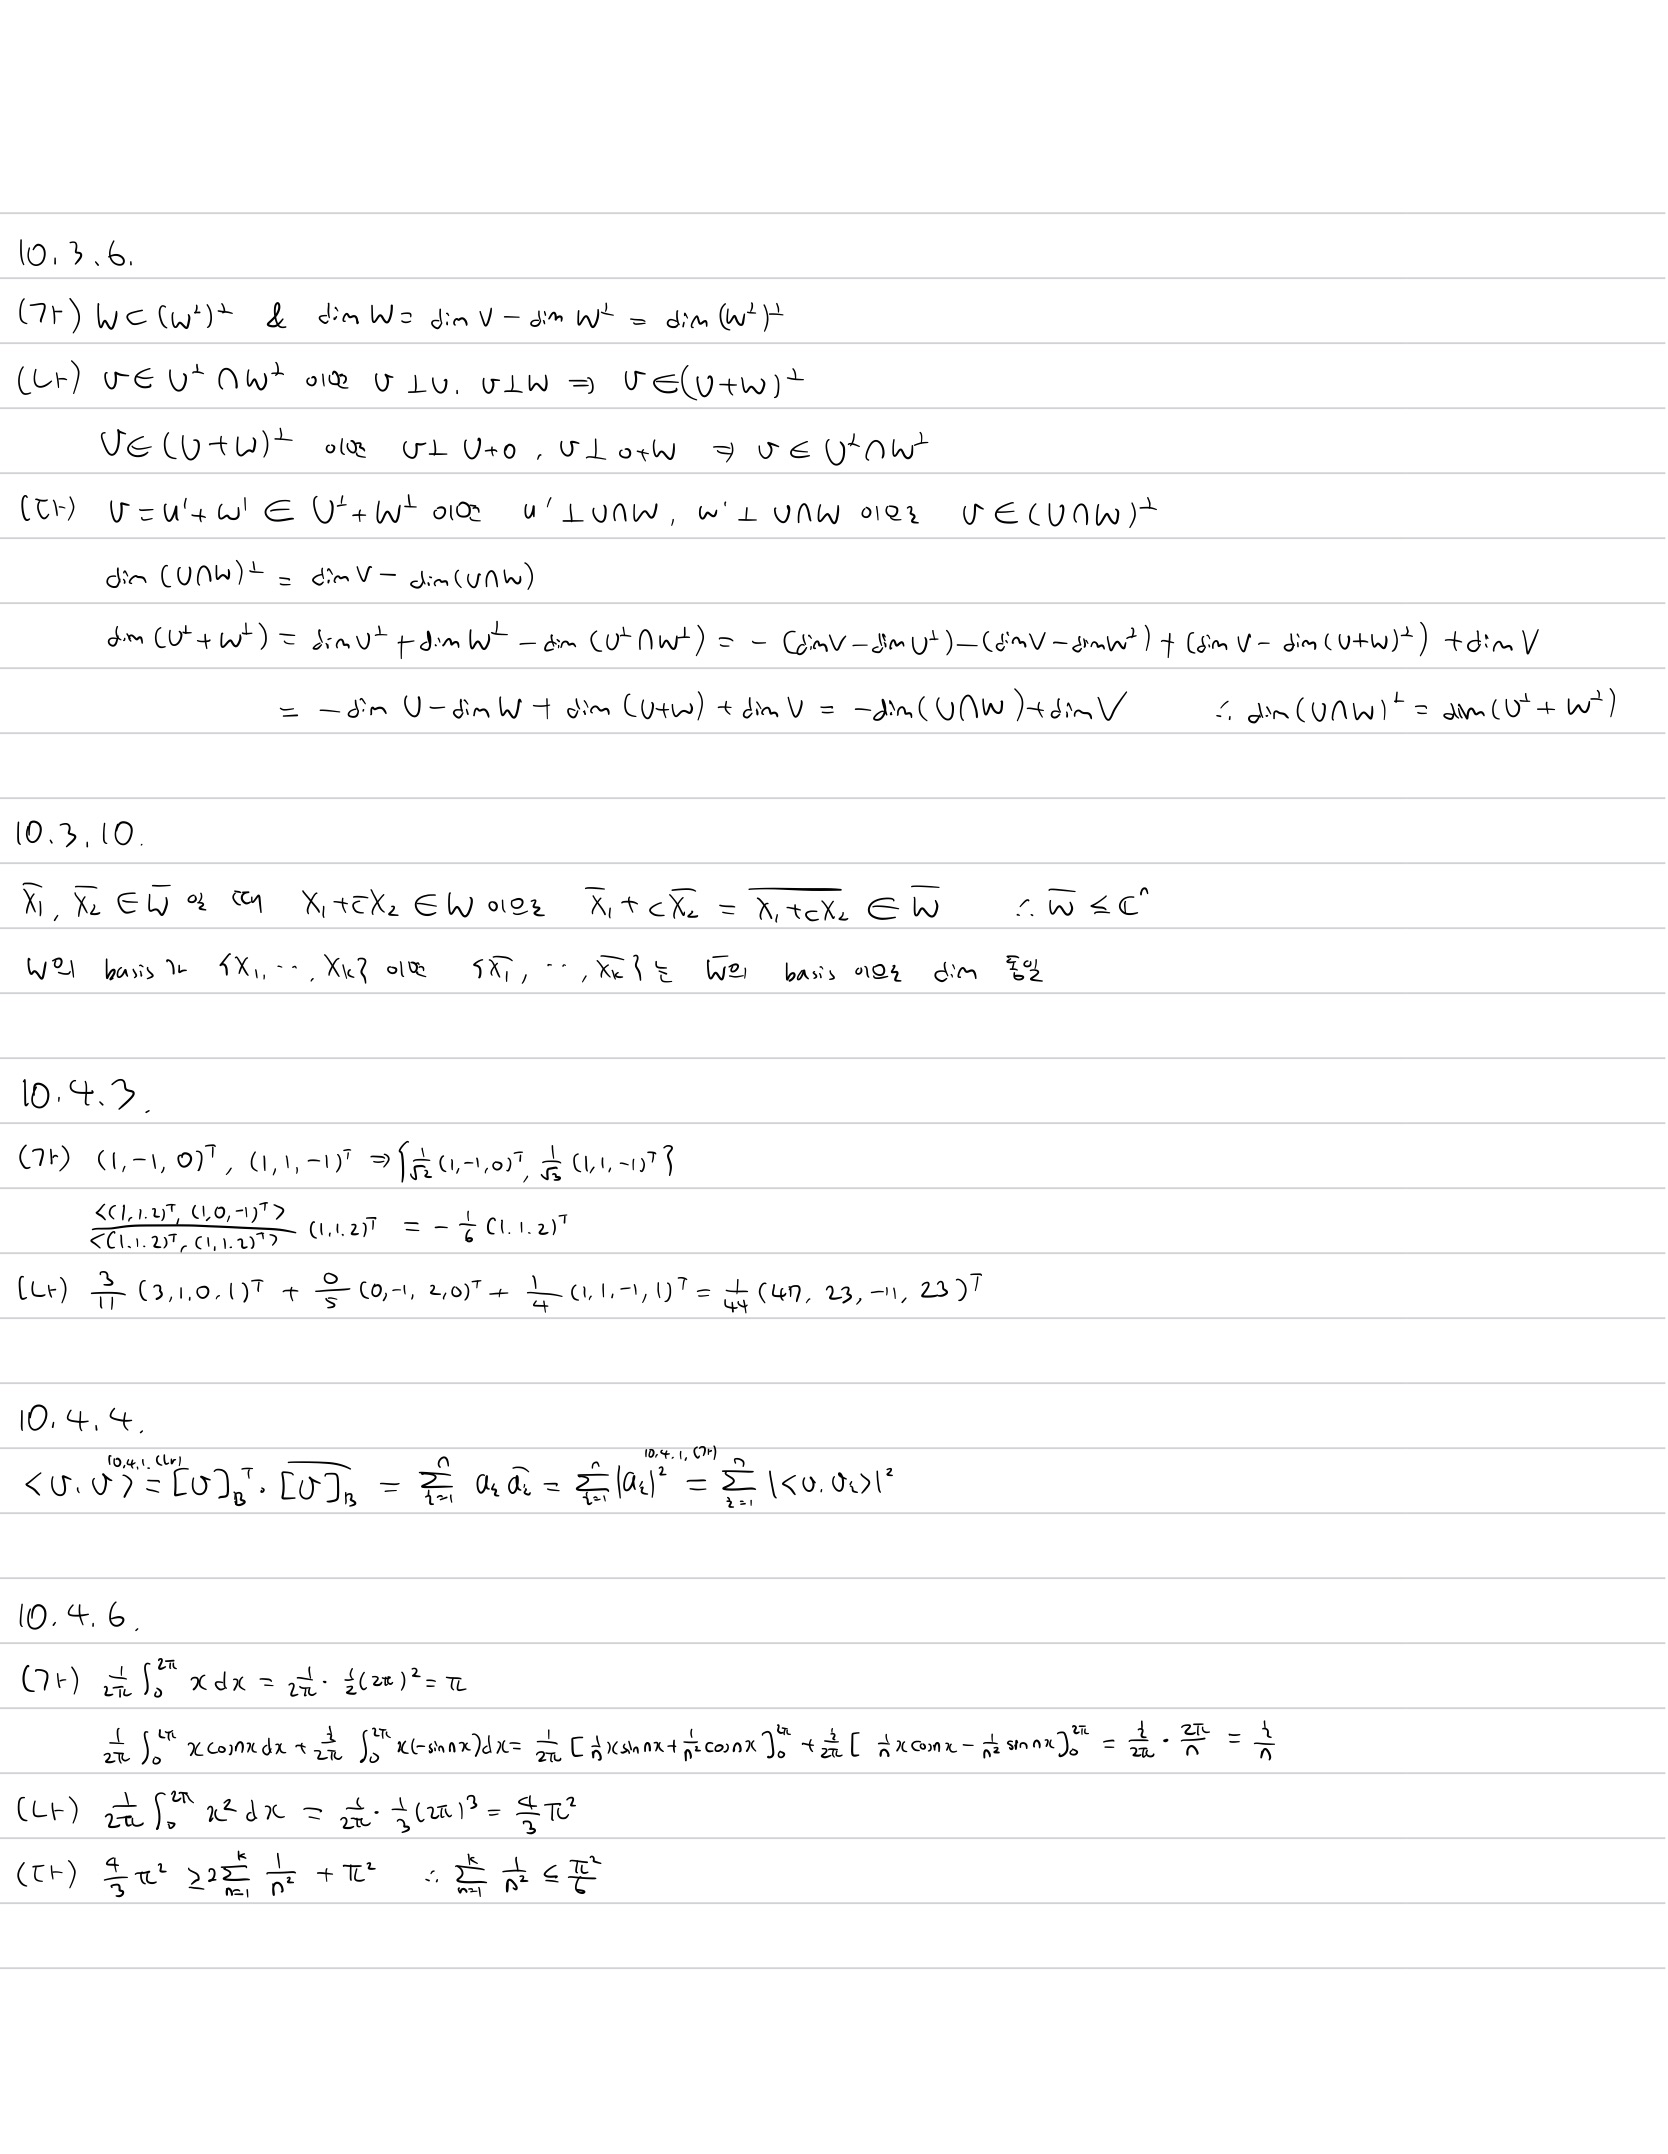 10.3.6.
(가) W⊂(W^⊥)^⊥ & dim W = dim V - dim W^⊥ = dim (W^⊥)^⊥
(나) v∈ U^⊥∩W^⊥ 이면 v⊥U, v⊥W ⇒ v∈(U+W)^⊥
v∈(U+W)^⊥ 이면 v⊥U+0, v⊥0+W ⇒ v∈U^⊥∩W^⊥
(다) v=u'+w' ∈ U^⊥+W^⊥ 이면 u'⊥U∩W, w'⊥U∩W 이므로 v∈(U∩W)^⊥
dim (U∩W)^⊥ = dim V - dim(U∩W)
dim (U^⊥+W^⊥) = dim U^⊥ + dim W^⊥ - dim (U^⊥∩W^⊥) = - (dim V - dim U^⊥) - (dim V - dim W^⊥) + (dim V - dim (U+W)^⊥) + dim V
= - dim U - dim W + dim (U+W) + dim V = -dim(U∩W) + dim V ∴ dim(U∩W)^⊥ = dim(U^⊥+W^⊥)
10.3.10.
X̄₁, X̄₂ ∈ W̄ 일 때 X₁+c̄X₂ ∈ W 이므로 X̄₁+cX̄₂ = \overline{X₁+c̄X₂} ∈ W̄ ∴ W̄ ≤ ℂⁿ
W의 basis가 {X₁, ..., X_k} 이면 {X̄₁, ..., X̄_k}는 W̄의 basis 이므로 dim 동일
10.4.3.
(가) (1,-1,0)^T, (1,1,-1)^T ⇒ {1/√2 (1,-1,0)^T, 1/√3 (1,1,-1)^T}
<(1,1,2)^T, (1,0,-1)^T> / <(1,1,2)^T, (1,1,2)^T> (1,1,2)^T = - 1/6 (1,1,2)^T
(나) 3/11 (3,1,0,1)^T + 0/5 (0,-1,2,0)^T + 1/4 (1,1,-1,1)^T = 1/44 (47, 23, -11, 23)^T
10.4.4.
<v,v> =^{10.4.1.(나)} [v]_B^T · \overline{[v]_B} = Σ_{i=1}^n a_i ā_i = Σ_{i=1}^n |a_i|² =^{10.4.1.(가)} Σ_{i=1}^n |<v,v_i>|²
10.4.6.
(가) 1/2π ∫₀^{2π} x dx = 1/2π · 1/2 (2π)² = π
1/2π ∫₀^{2π} x cos nx dx + i/2π ∫₀^{2π} x(-sin nx) dx = 1/2π [1/n x sin nx + 1/n² cos nx]₀^{2π} + i/2π [1/n x cos nx - 1/n² sin nx]₀^{2π} = i/2π · 2π/n = i/n
(나) 1/2π ∫₀^{2π} x² dx = 1/2π · 1/3 (2π)³ = 4/3 π²
(다) 4/3 π² ≥ 2 Σ_{n=1}^k 1/n² + π² ∴ Σ_{n=1}^k 1/n² ≤ π²/6